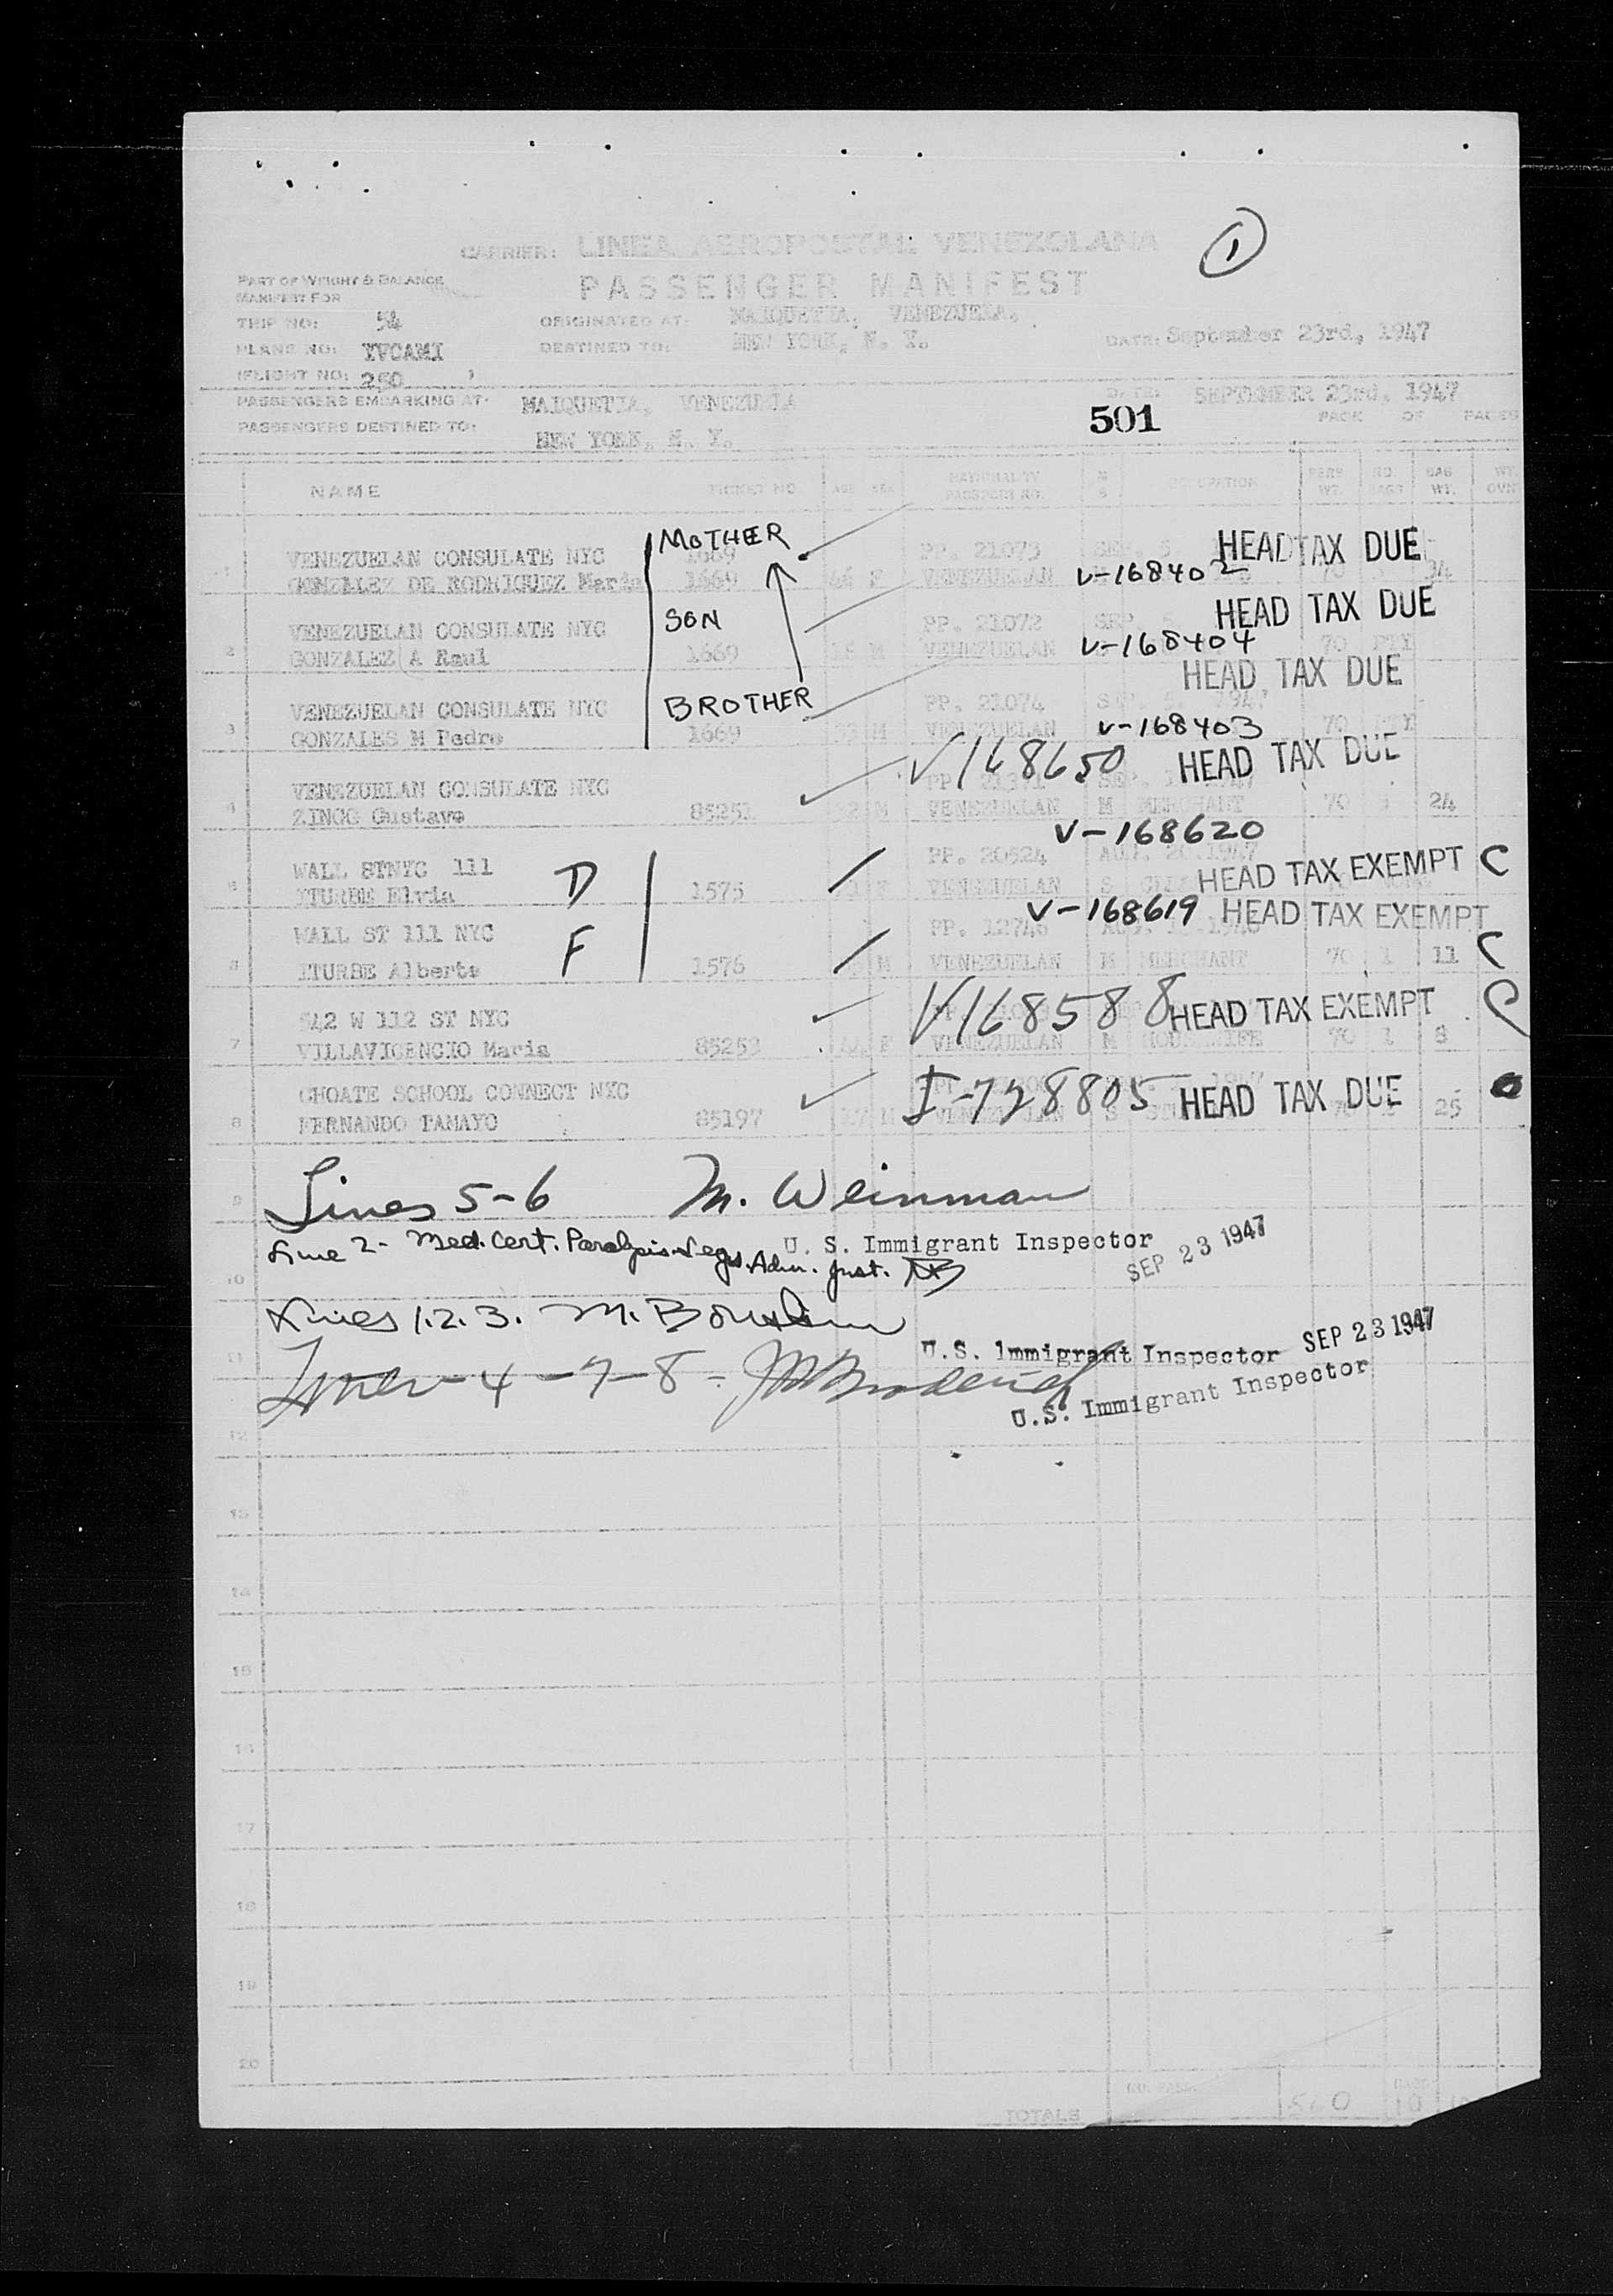 1
CARRIER: LINEA AEROPOSTAL VENEZOLANA
PART OF WEIGHT & BALANCE
MANIFEST FOR
PASSENGER MANIFEST
TRIP NO: 54
ORIGINATED AT: MAIQUETIA, VENEZUELA.
PLANE NO: YVCAMI
DESTINED TO: NEW YORK, N. Y.
DATE: September 23rd, 1947
(FLIGHT NO: 250 )
PASSENGERS EMBARKING AT: MAIQUETIA, VENEZUELA
SEPTEMBER 23rd, 1947
PASSENGERS DESTINED TO: NEW YORK, N. Y.
501
PAGE OF PAGES
NAME TICKET NO AGE SEX NATIONALITY PASSPORT NO. M S OCCUPATION PERS WT. NO. BAGS BAG WT. WT. OVR
VENEZUELAN CONSULATE NYC 1669 MOTHER PP. 21073 SEP. 5 HEAD TAX DUE
1 GONZALEZ DE RODRIGUEZ Maria 1669 46 F VENEZUELAN V-168402 70 34
VENEZUELAN CONSULATE NYC SON PP. 21072 SEP. HEAD TAX DUE
2 GONZALEZ A Raul 1669 M VENEZUELAN V-168404 70 PTY
HEAD TAX DUE
VENEZUELAN CONSULATE NYC BROTHER PP. 21074 1947
3 GONZALES M Pedro 1669 M VENEZUELAN V-168403 70 PTY
V168650 HEAD TAX DUE
VENEZUELAN CONSULATE NYC PP. 21371
4 ZINGG Gustavo 85251 M VENEZUELAN M MERCHANT 70 24
V-168620
WALL STNYC 111 D PP. 20524 AUG. 20.1947 HEAD TAX EXEMPT C
5 ITURBE Elvia 1575 F VENEZUELAN S
V-168619 HEAD TAX EXEMPT
WALL ST 111 NYC F PP. 12746
6 ITURBE Alberto 1576 M VENEZUELAN M MERCHANT 70 1 11 C
542 W 112 ST NYC V168588 HEAD TAX EXEMPT C
7 VILLAVICENCIO Maria 85253 F VENEZUELAN M HOUSEWIFE 70 1 8
CHOATE SCHOOL CONNECT NYC I-728805 HEAD TAX DUE
8 FERNANDO TAMAYO 85197 17 M VENEZUELAN S 25
9 Lines 5-6 M. Weinman
U. S. Immigrant Inspector SEP 23 1947
10 Line 2- Med. Cert. Paralysis Legs. Adm. Just.
Lines 1.2.3. M.
U.S. Immigrant Inspector SEP 23 1947
11 Lines - 4 - 7 - 8 -
U.S. Immigrant Inspector
12
13
14
15
16
17
18
19
20
TOTALS 560 10